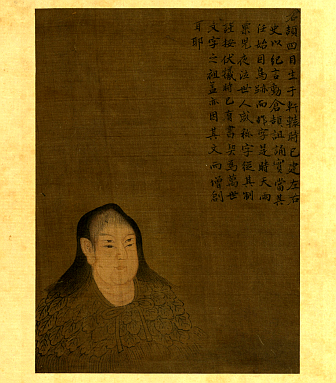 頡四目生于軒轅時已建左右
史以紀言動倉頡沮誦實當其
任始因鳥跡而作字是時天雨
粟鬼夜泣世人咸稱字從其制
謹按伏羲時已有書契為萬世
文字之祖蓋亦因其文而增創
耳耶